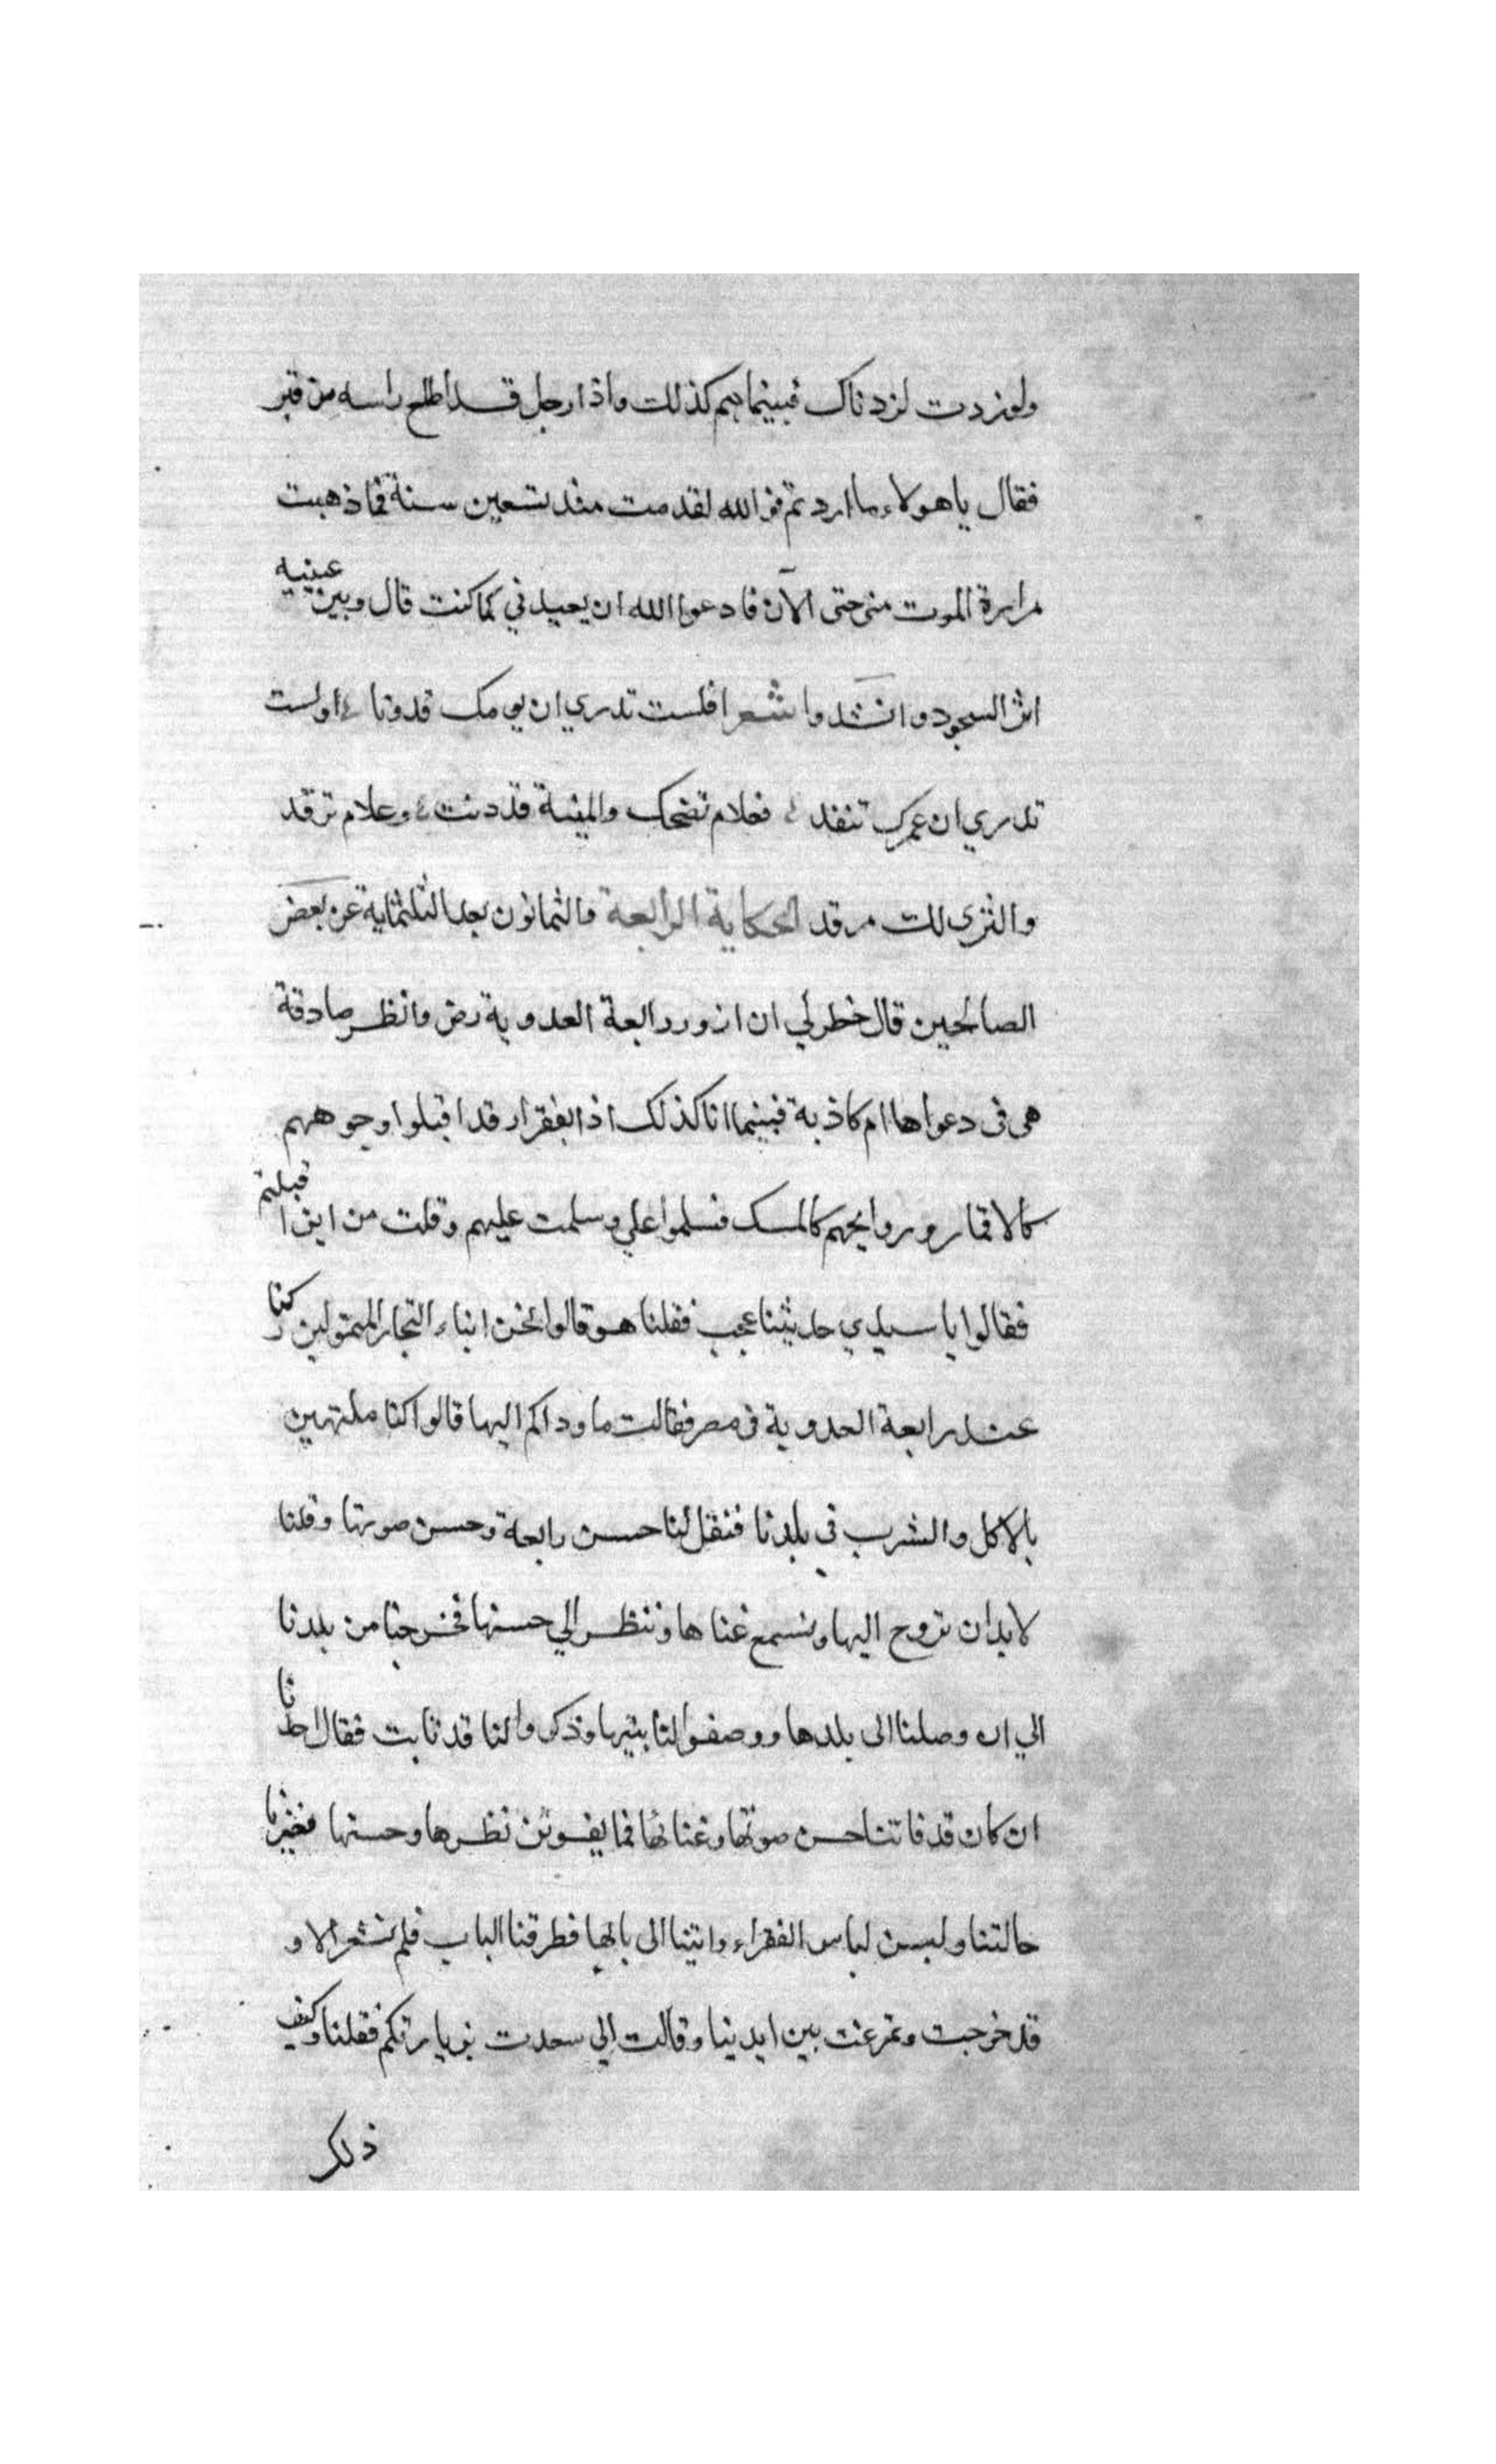 ولو زدت لزدناك فبينما هم كذلك واذا رجل قد اطلع راسه من قبر
فقال يا هولاء ما اردتم فو الله لقد مت منذ تسعين سنة فما ذهبت
مرارة الموت منى حتى الآن فادعوا الله ان يعيدني كما كنت قال وبين عينيه
اثر السجود وانشدوا شعرا فلست تدري ان يومك قد دنا اولست
تدري ان عمرك تنفد فعلام تضحك والمنية قد دنت وعلام ترقد
والثرى لك مرقد الحكاية الرابعة والثمانون بعد الثلثماية عن بعض
الصالحين قال خطر لي ان ازور رابعة العدوية رض وانظر صادقة
هى فى دعواها ام كاذبة فبينما انا كذلك اذا بفقراء قد اقبلوا وجوههم
كالاقمار وروايحهم كالمسك فسلموا علي وسلمت عليهم وقلت من اين اقبلتم
فقالوا يا سيدي حديثنا عجب فقلنا هو قالوا نحن ابناء التجار المتمولين كنا
عند رابعة العدوية فى مصر فقالت ما وداكم اليها قالوا كنا ملتهين
بالاكل والشرب في بلدنا فنقل لنا حسن رابعة وحسن صوتها وقلنا
لابد ان نروح اليها ونسمع غناها وننظر الي حسنها فخرجنا من بلدنا
الي ان وصلنا الى بلدها ووصفوا لنا بيتها وذكروا لنا قد تابت فقال احدنا
ان كان قد فاتنا حسن صوتها وغنائها فما يفوتن نظرها وحسنها فغيرنا
حالتنا ولبسن لباس الفقراء واتينا الى بابها فطرقنا الباب فلم نشعر الا و
قد خرجت وتمرغت بين ايدينا وقالت الي سعدت بزيارتكم فقلنا وكيف
ذلك